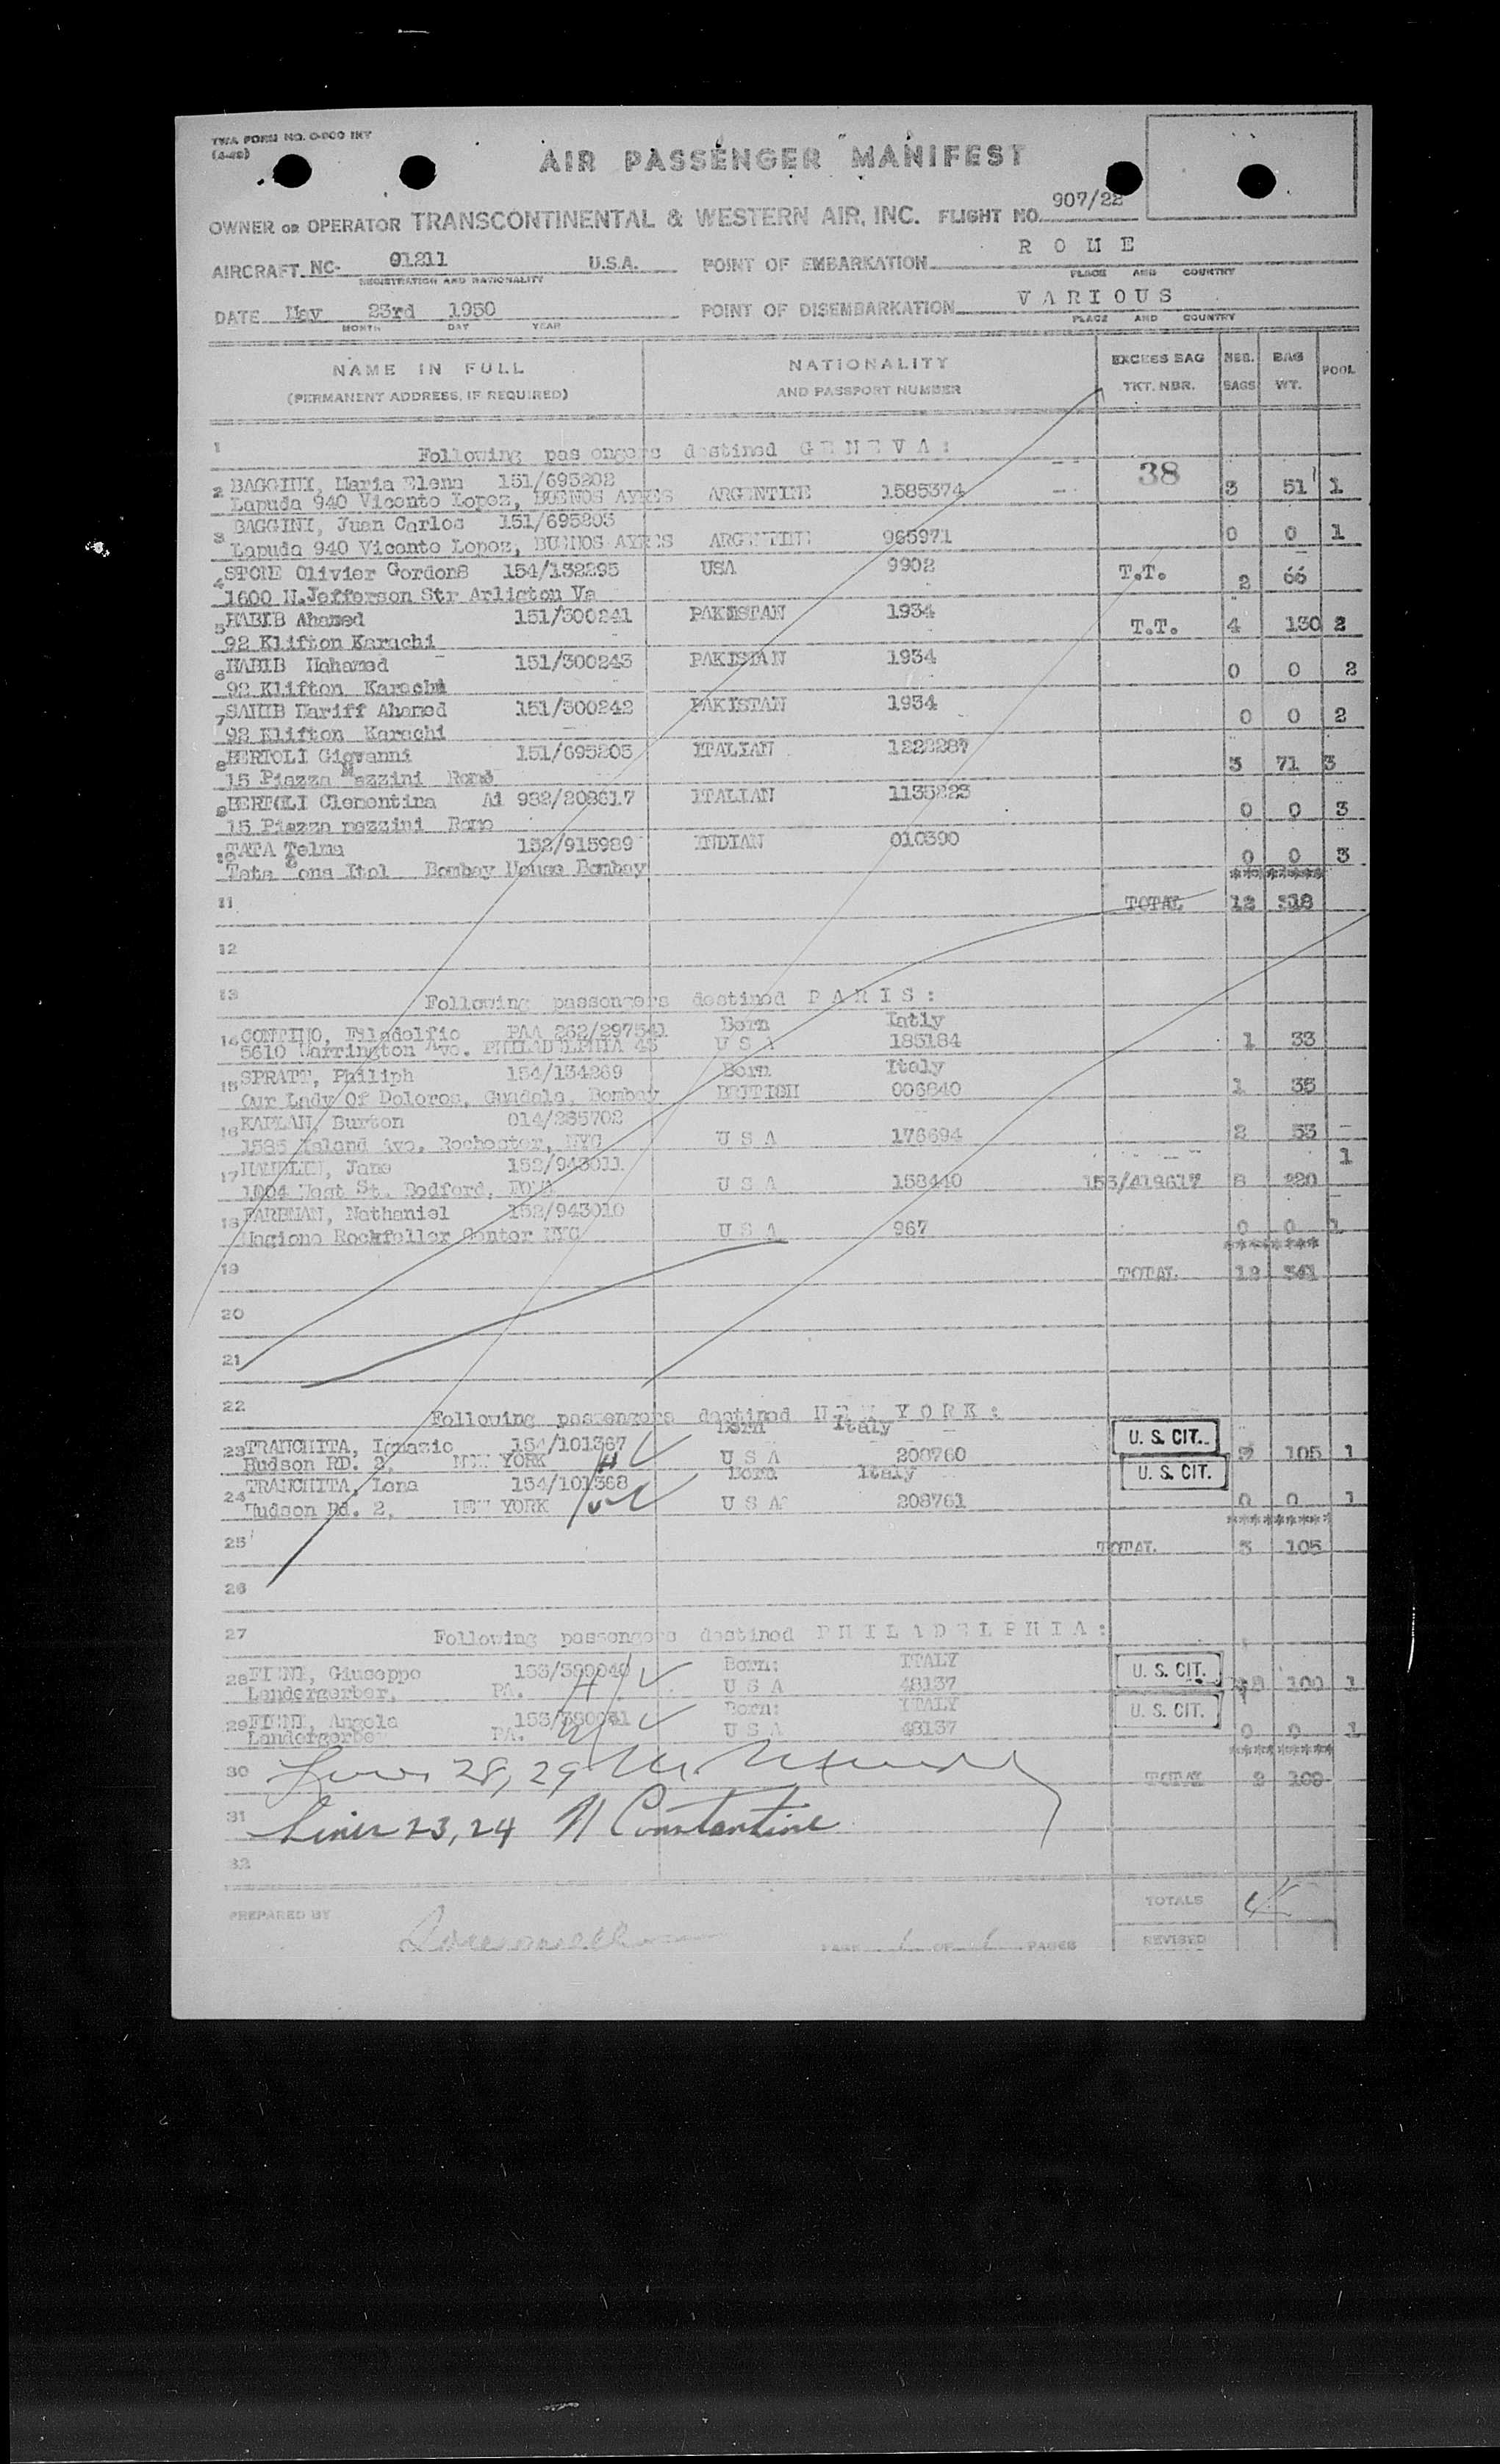 TWA FORM NO. O-800 INT
AIR PASSENGER MANIFEST
OWNER OR OPERATOR TRANSCONTINENTAL & WESTERN AIR, INC. FLIGHT NO. 907/22
AIRCRAFT NC- 01211 U.S.A. POINT OF EMBARKATION R O M E
REGISTRATION AND NATIONALITY PLACE AND COUNTRY
DATE May 23rd 1950 POINT OF DISEMBARKATION V A R I O U S
MONTH DAY YEAR PLACE AND COUNTRY
NAME IN FULL NATIONALITY EXCESS BAG NBR. BAG POOL
(PERMANENT ADDRESS, IF REQUIRED) AND PASSPORT NUMBER TKT. NBR. BAGS WT.
1 Following pas engers destined G E N E V A :
38
2 BAGGINI, Maria Elena 151/695202
Lapuda 940 Vicente Lopez, BUENOS AYRES ARGENTINE 1585374 3 51 1
3 BAGGINI, Juan Carlos 151/695203
Lapuda 940 Vicente Lopez, BUENOS AYRES ARGENTINE 965971 0 0 1
4 STONE Olivier Gordons 154/132295 USA 9902 T.T. 2 66
1600 N.Jefferson Str Arligton Va
5 HABIB Ahamed 151/300241 PAKISTAN 1934 T.T. 4 130 2
92 Klifton Karachi
6 HABIB Mohamed 151/300243 PAKISTAN 1934 0 0 2
92 Klifton Karachi
7 SAHIB Hariff Ahamed 151/300242 PAKISTAN 1934 0 0 2
92 Klifton Karachi
8 BERTOLI Giovanni 151/695205 ITALIAN 1223287 3 71 3
15 Piazza Mazzini Rome
9 BERTOLI Clementina Ai 932/208617 ITALIAN 1135223 0 0 3
15 Piazza mazzini Rome
10 TATA Telma 152/915989 INDIAN 010390 0 0 3
Tata Sons Itol Bombay House Bombay
11 TOTAL 12 318
12
13 Following passengers destined P A R I S :
14 CONTINO, Filadelfio PAA 262/297541 Born Iatly
5610 Warrington Ave. PHILADELPHIA 43 U S A 185184 1 33
15 SPRATT, Philiph 154/134269 Born Italy
Our Lady Of Doloros, Bombay BRITISH 006840 1 35
16 KAPLAN, Burton 014/265702
1585 Ave, Rochester, NYC U S A 176694 2 53
17 Jane 152/943011 1
1004 West St. Bedford, IOWA U S A 158440 153/419617 8 220
18 FARBMAN, Nathaniel 152/943010
Rockfeller Center NYC U S A 967 0 0 1
19 TOTAL 12 341
20
21
22 Following passengers destined N E W Y O R K :
Born Italy
23 TRANCHITA, Ignazio 154/101367 U. S. CIT.
Hudson RD. 2, NEW YORK U S A 208760 3 105 1
Born Italy
24 TRANCHITA, Lena 154/101368 U. S. CIT.
Hudson Rd. 2, NEW YORK U S A 208761 0 0 1
25 TOTAL 3 105
26
27 Following passengers destined P H I L A D E L P H I A :
28 FIENI, Giuseppe 153/380040 Born: ITALY U. S. CIT.
Landergerber, PA. U S A 48137 100 1
29 FIENI, Angela 153/380041 Born: ITALY U. S. CIT.
Landergerber PA. U S A 48137 0 0 1
30 Lines 28, 29 TOTAL 2 100
31 Lines 23, 24 N Constantine
32
PREPARED BY TOTALS 4
PAGE 1 OF 1 PAGES REVISED